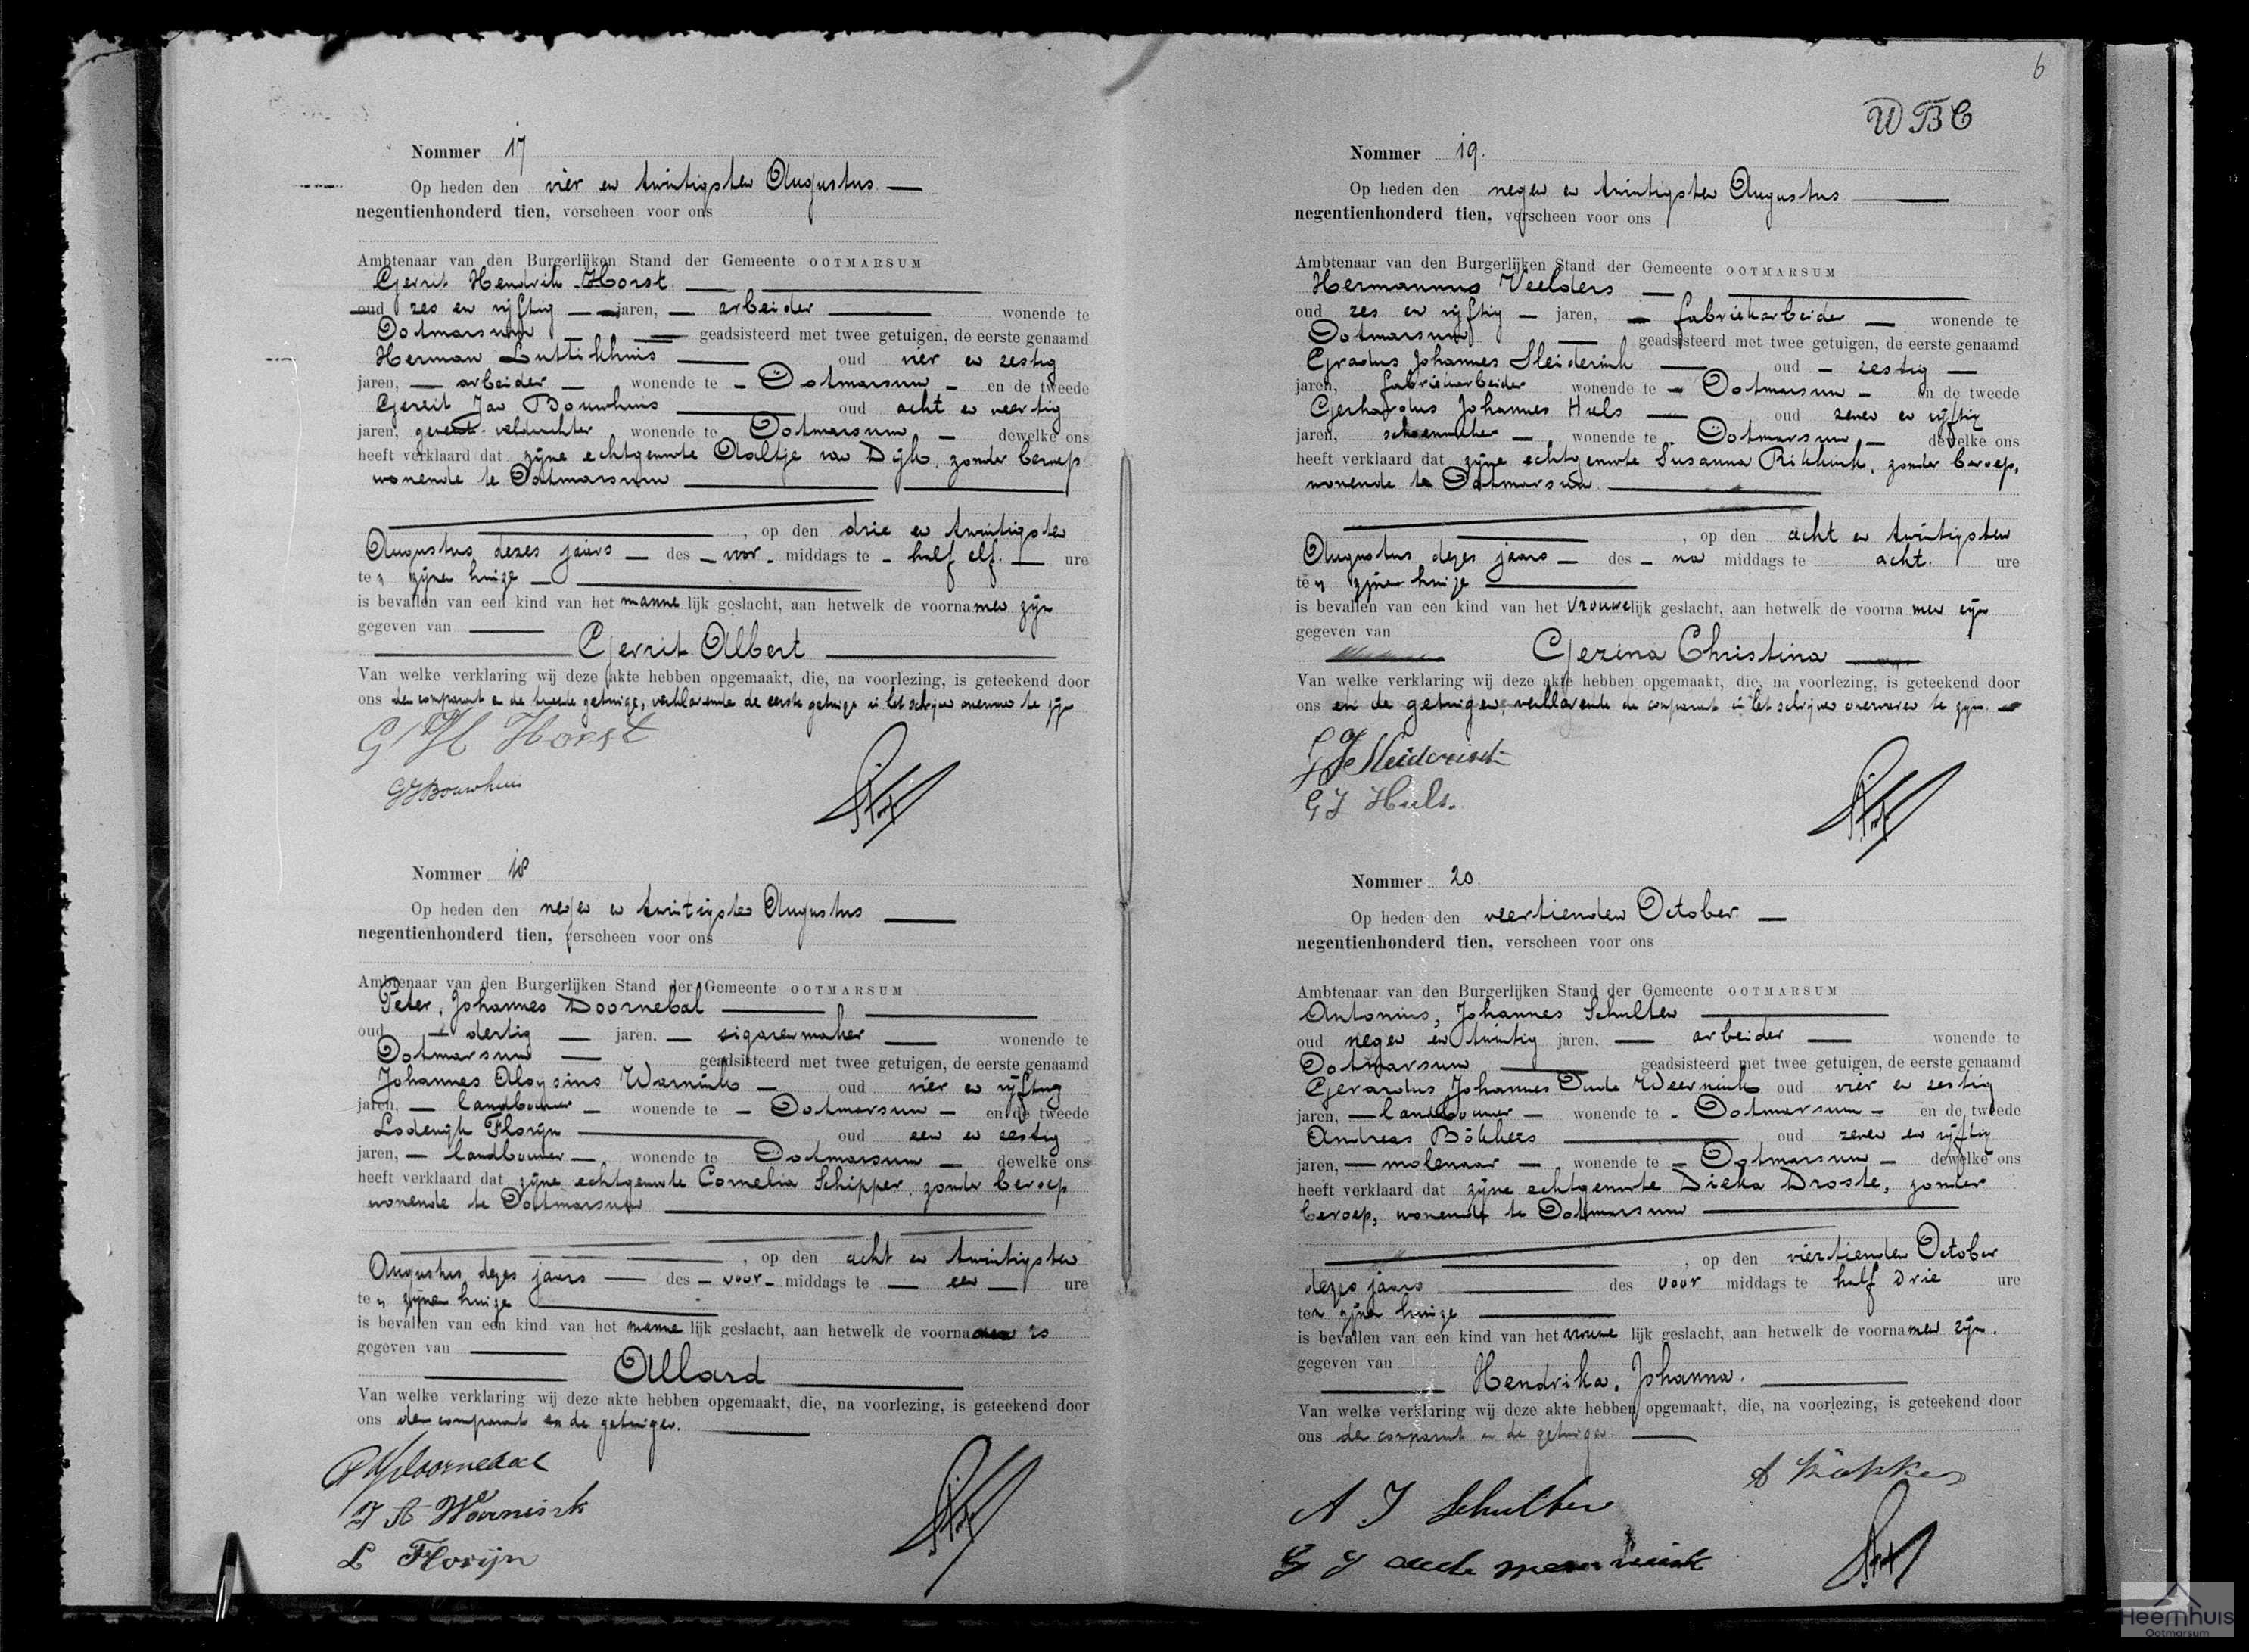 Nommer 17
Op heden den vier en twintigsten Augustus
negentienhonderd tien, verscheen voor ons
Ambtenaar van den Burgerlijken Stand der Gemeente OOTMARSUM
Gerrit Hendrik Horst
oud zes en vijftig jaren, arbeider wonende te
Ootmarsum geadsisteerd met twee getuigen, de eerste genaamd
Herman Luttikhuis oud vier en zestig
jaren, arbeider wonende te Ootmarsum en de tweede
Gerrit Jan Bouwhuis oud acht en veertig
jaren, veldwachter wonende te Ootmarsum dewelke ons
heeft verklaard dat zijne echtgenoote Aaltje van Dijk, zonder beroep
wonende te Ootmarsum
, op den drie en twintigsten
Augustus dezes jaars des voor middags te half elf. ure
ten zijnen huize
is bevallen van een kind van het mannelijk geslacht, aan hetwelk de voornamen zijn
gegeven van
Gerrit Albert
Van welke verklaring wij deze akte hebben opgemaakt, die, na voorlezing, is geteekend door
ons den comparant en de tweede getuige, verklarende de eerste getuige in het schrijven onervaren te zijn
G H Horst
GJ Bouwhuis
Nommer 18
Op heden den negen en twintigsten Augustus
negentienhonderd tien, verscheen voor ons
Ambtenaar van den Burgerlijken Stand der Gemeente OOTMARSUM
Peter, Johannes Doornebal
oud dertig jaren, sigarenmaker wonende te
Ootmarsum geadsisteerd met twee getuigen, de eerste genaamd
Johannes Aloysius Wernink oud vier en vijftig
jaren, landbouwer wonende te Ootmarsum en de tweede
Lodewijk Florijn oud een en zestig
jaren, landbouwer wonende te Ootmarsum dewelke ons
heeft verklaard dat zijne echtgenoote Cornelia Schipper, zonder beroep
wonende te Ootmarsum
, op den acht en twintigsten
Augustus dezes jaars des voor middags te een ure
ten zijnen huize
is bevallen van een kind van het mannelijk geslacht, aan hetwelk de voornaam is
gegeven van
Allard
Van welke verklaring wij deze akte hebben opgemaakt, die, na voorlezing, is geteekend door
ons den comparant en de getuigen.
P J Doornebal
J A Wernink
L Florijn
6
WBC
Nommer 19.
Op heden den negen en twintigsten Augustus
negentienhonderd tien, verscheen voor ons
Ambtenaar van den Burgerlijken Stand der Gemeente OOTMARSUM
Hermannus Veelders
oud zes en vijftig jaren, fabriekarbeider wonende te
Ootmarsum geadsisteerd met twee getuigen, de eerste genaamd
Gradus Johannes Sleiderink oud zestig
jaren, fabriekarbeider wonende te Ootmarsum en de tweede
Gerhardus Johannes Huls oud zeven en vijftig
jaren, schoenmaker wonende te Ootmarsum dewelke ons
heeft verklaard dat zijne echtgenoote Susanna Rikkink, zonder beroep,
wonende te Ootmarsum
, op den acht en twintigsten
Augustus dezes jaars des na middags te acht. ure
ten zijnen huize
is bevallen van een kind van het vrouwelijk geslacht, aan hetwelk de voornamen zijn
gegeven van
Gezina Christina
Van welke verklaring wij deze akte hebben opgemaakt, die, na voorlezing, is geteekend door
ons en de getuigen, verklarende de comparant in het schrijven onervaren te zijn.
G J Sleiderink
G J Huls.
Nommer 20.
Op heden den veertienden October
negentienhonderd tien, verscheen voor ons
Ambtenaar van den Burgerlijken Stand der Gemeente OOTMARSUM
Antonius, Johannes Schulten
oud negen en twintig jaren, arbeider wonende te
Ootmarsum geadsisteerd met twee getuigen, de eerste genaamd
Gerardus Johannes Oude Weernink oud vier en zestig
jaren, landbouwer wonende te Ootmarsum en de tweede
Andreas Bökkers oud zeven en vijftig
jaren, molenaar wonende te Ootmarsum dewelke ons
heeft verklaard dat zijne echtgenoote Dieka Droste, zonder
beroep, wonende te Ootmarsum
, op den veertienden October
dezes jaars des voor middags te half drie ure
ten zijnen huize
is bevallen van een kind van het vrouwelijk geslacht, aan hetwelk de voornamen zijn.
gegeven van
Hendrika, Johanna.
Van welke verklaring wij deze akte hebben opgemaakt, die, na voorlezing, is geteekend door
ons den comparant en de getuigen.
A Bökkers
A J Schulten
G J oude weernink
Heemhuis
Ootmarsum